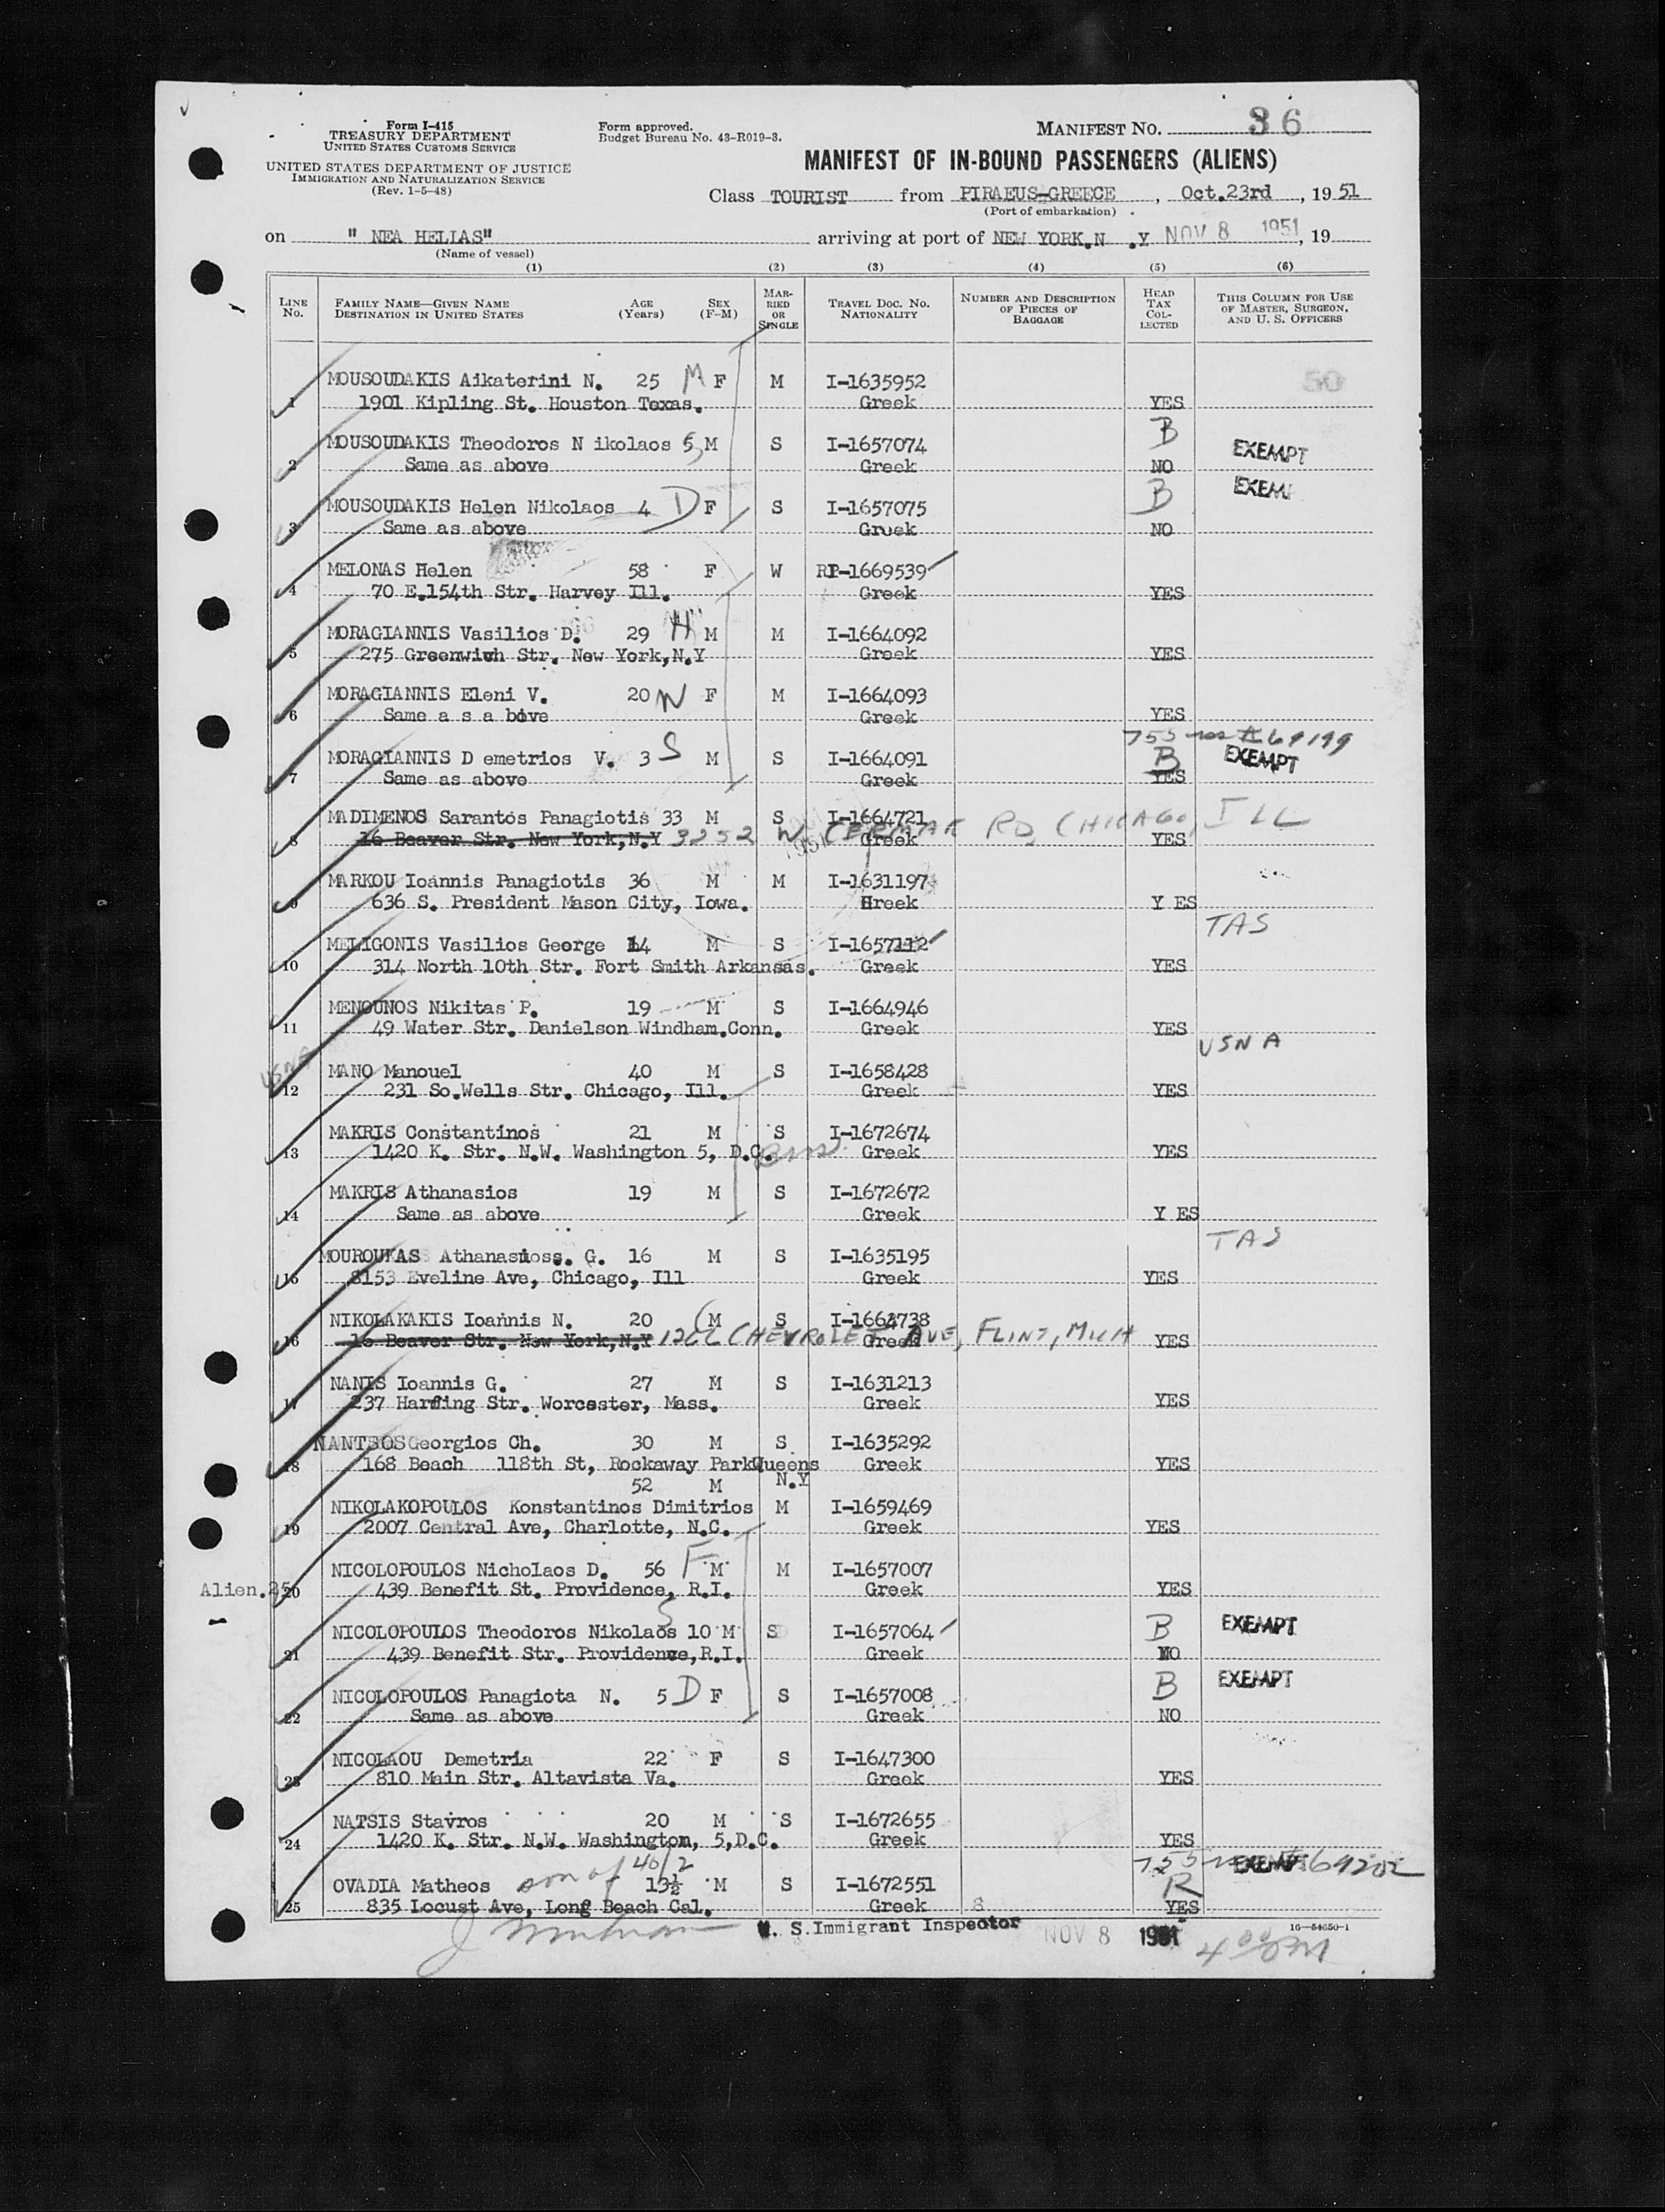 Form I-415
TREASURY DEPARTMENT
UNITED STATES CUSTOMS SERVICE
UNITED STATES DEPARTMENT OF JUSTICE
IMMIGRATION AND NATURALIZATION SERVICE
(Rev. 1-5-48)
Form approved.
Budget Bureau No. 43-R019-3.
MANIFEST NO. 36
MANIFEST OF IN-BOUND PASSENGERS (ALIENS)
Class TOURIST from PIRAEUS-GREECE, Oct.23rd, 1951
(Port of embarkation)
on " NEA HELLAS" arriving at port of NEW YORK.N .Y NOV 8 1951, 19
(Name of vessel)
(1) (2) (3) (4) (5) (6)
LINE No. FAMILY NAME—GIVEN NAME DESTINATION IN UNITED STATES AGE (Years) SEX (F-M) MARRIED OR SINGLE TRAVEL DOC. NO. NATIONALITY NUMBER AND DESCRIPTION OF PIECES OF BAGGAGE HEAD TAX COLLECTED THIS COLUMN FOR USE OF MASTER, SURGEON, AND U. S. OFFICERS
MOUSOUDAKIS Aikaterini N. 25 M F M I-1635952 50
1 1901 Kipling St. Houston Texas. Greek YES
MOUSOUDAKIS Theodoros N ikolaos 5 M S I-1657074 B EXEMPT
2 Same as above Greek NO
MOUSOUDAKIS Helen Nikolaos 4 D F S I-1657075 B EXEM
3 Same as above Greek NO
MELONAS Helen 58 F W RP-1669539
4 70 E.154th Str. Harvey Ill. Greek YES
MORAGIANNIS Vasilios D. 29 H M M I-1664092
5 275 Greenwich Str. New York,N.Y Greek YES
MORAGIANNIS Eleni V. 20 W F M I-1664093
6 Same a s a bove Greek YES
MORAGIANNIS D emetrios V. 3 S M S I-1664091 B EXEMPT
7 Same as above Greek YES
MADIMENOS Sarantos Panagiotis 33 M S I-1664721
8 16 Beaver Str. New York,N.Y 3252 W. CERMAK RD, CHICAGO, ILL Greek YES
MARKOU Ioannis Panagiotis 36 M M I-1631197
9 636 S. President Mason City, Iowa. Greek Y ES
TAS
MELIGONIS Vasilios George 14 M S I-1657112
10 314 North 10th Str. Fort Smith Arkansas. Greek YES
MENOUNOS Nikitas P. 19 M S I-1664946
11 49 Water Str. Danielson Windham.Conn. Greek YES
USNA
MANO Manouel 40 M S I-1658428
USNA 12 231 So.Wells Str. Chicago, Ill. Greek YES
MAKRIS Constantinos 21 M S I-1672674
13 1420 K. Str. N.W. Washington 5, D.C. Greek YES
MAKRIS Athanasios 19 M S I-1672672
14 Same as above Greek Y ES
TAS
MOUROUKAS Athanasioss. G. 16 M S I-1635195
15 8153 Eveline Ave, Chicago, Ill Greek YES
NIKOLAKAKIS Ioannis N. 20 M S I-1664738
16 16 Beaver Str. New York,N.Y 1266 CHEVROLET AVE, FLINT, MICH Greek YES
NANIS Ioannis G. 27 M S I-1631213
17 237 Harding Str. Worcester, Mass. Greek YES
NANTSOS Georgios Ch. 30 M S I-1635292
18 168 Beach 118th St, Rockaway Park Queens Greek YES
52 M N.Y
NIKOLAKOPOULOS Konstantinos Dimitrios M I-1659469
19 2007 Central Ave, Charlotte, N.C. Greek YES
NICOLOPOULOS Nicholaos D. 56 F M M I-1657007
Alien. 20 439 Benefit St. Providence, R.I. Greek YES
NICOLOPOULOS Theodoros Nikolaos S 10 M S I-1657064 B EXEMPT
21 439 Benefit Str. Providence,R.I. Greek NO
NICOLOPOULOS Panagiota N. 5 D F S I-1657008 B EXEMPT
22 Same as above Greek NO
NICOLAOU Demetria 22 F S I-1647300
23 810 Main Str. Altavista Va. Greek YES
NATSIS Stavros 20 M S I-1672655
24 1420 K. Str. N.W. Washington, 5,D.C. Greek YES
OVADIA Matheos son of 46/2 13½ M S I-1672551 R
25 835 Locust Ave, Long Beach Cal. Greek 8 YES
U. S.Immigrant Inspector NOV 8 1951 16—54650-1